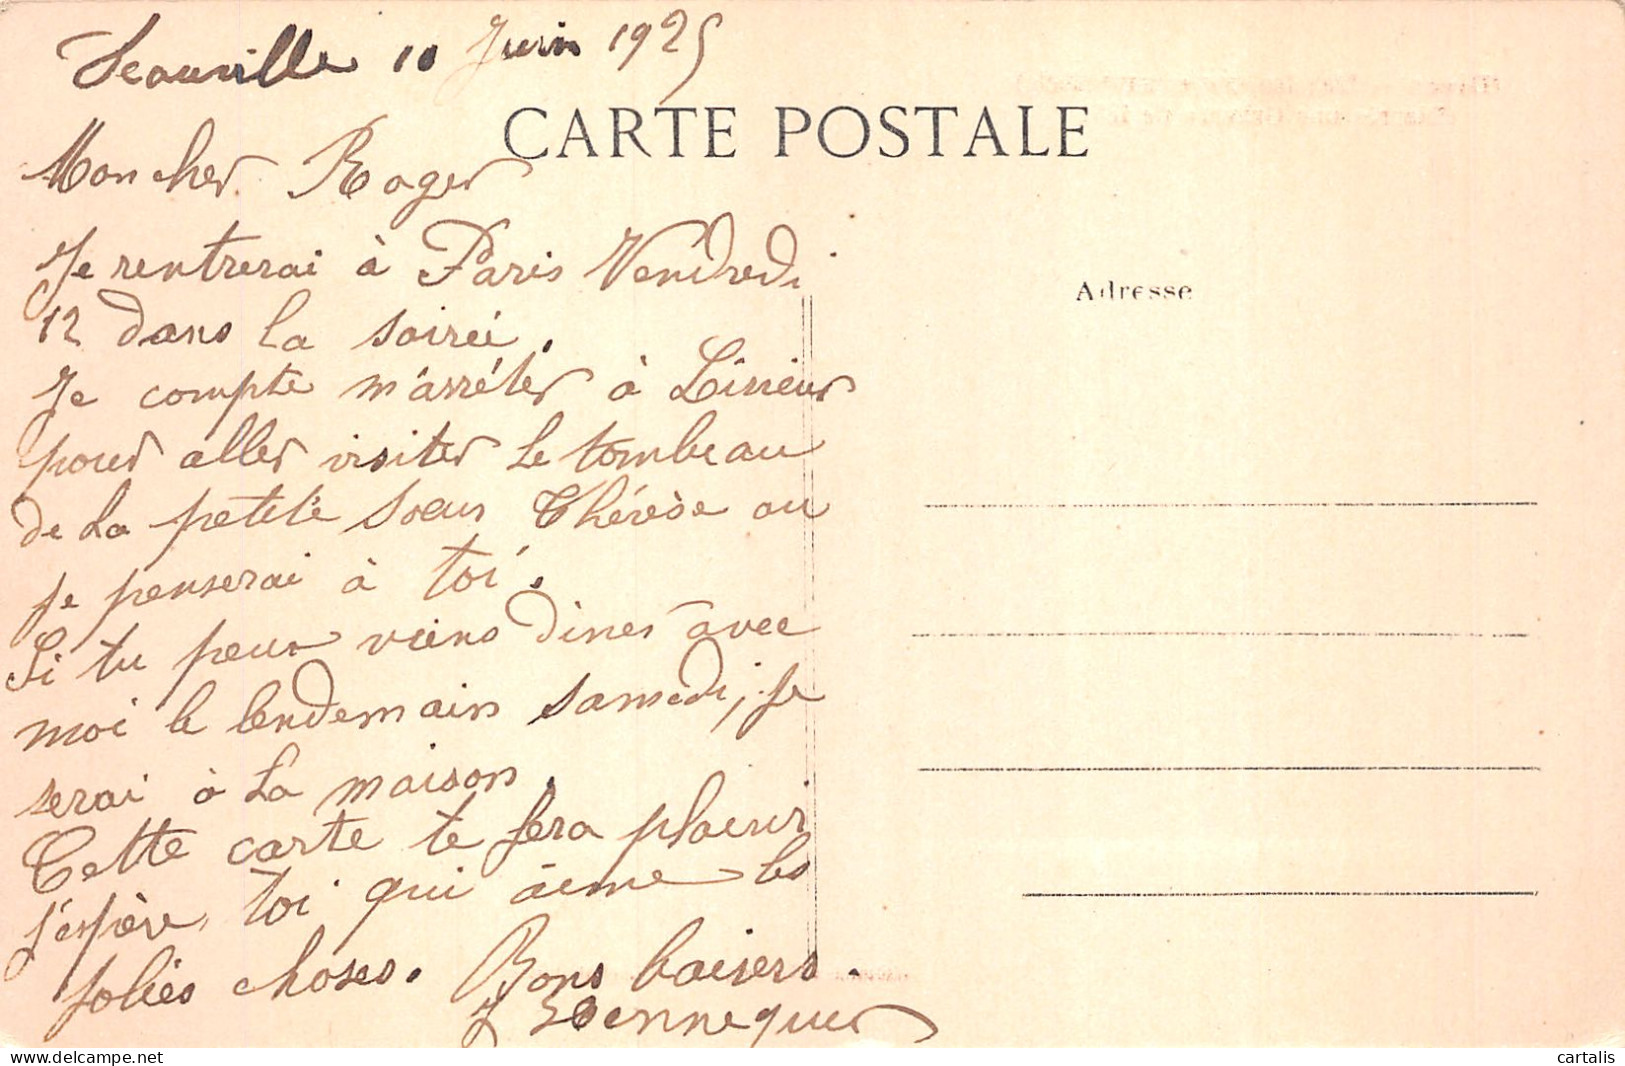 Deauville 10 Juin 1925
CARTE POSTALE
Mon cher Roger
Je rentrerai à Paris Vendredi
12 dans la soirée.
Je compte m'arrêter à Lisieux
pour aller visiter le tombeau
de la petite Soeur Thérèse ou
je penserai à toi.
Si tu peux viens diner avec
moi le lendemain samedi, je
serai à la maison.
Cette carte te fera plaisir
j'espère, toi qui aime les
jolies choses. Bons baisers.
Adresse
cartalis